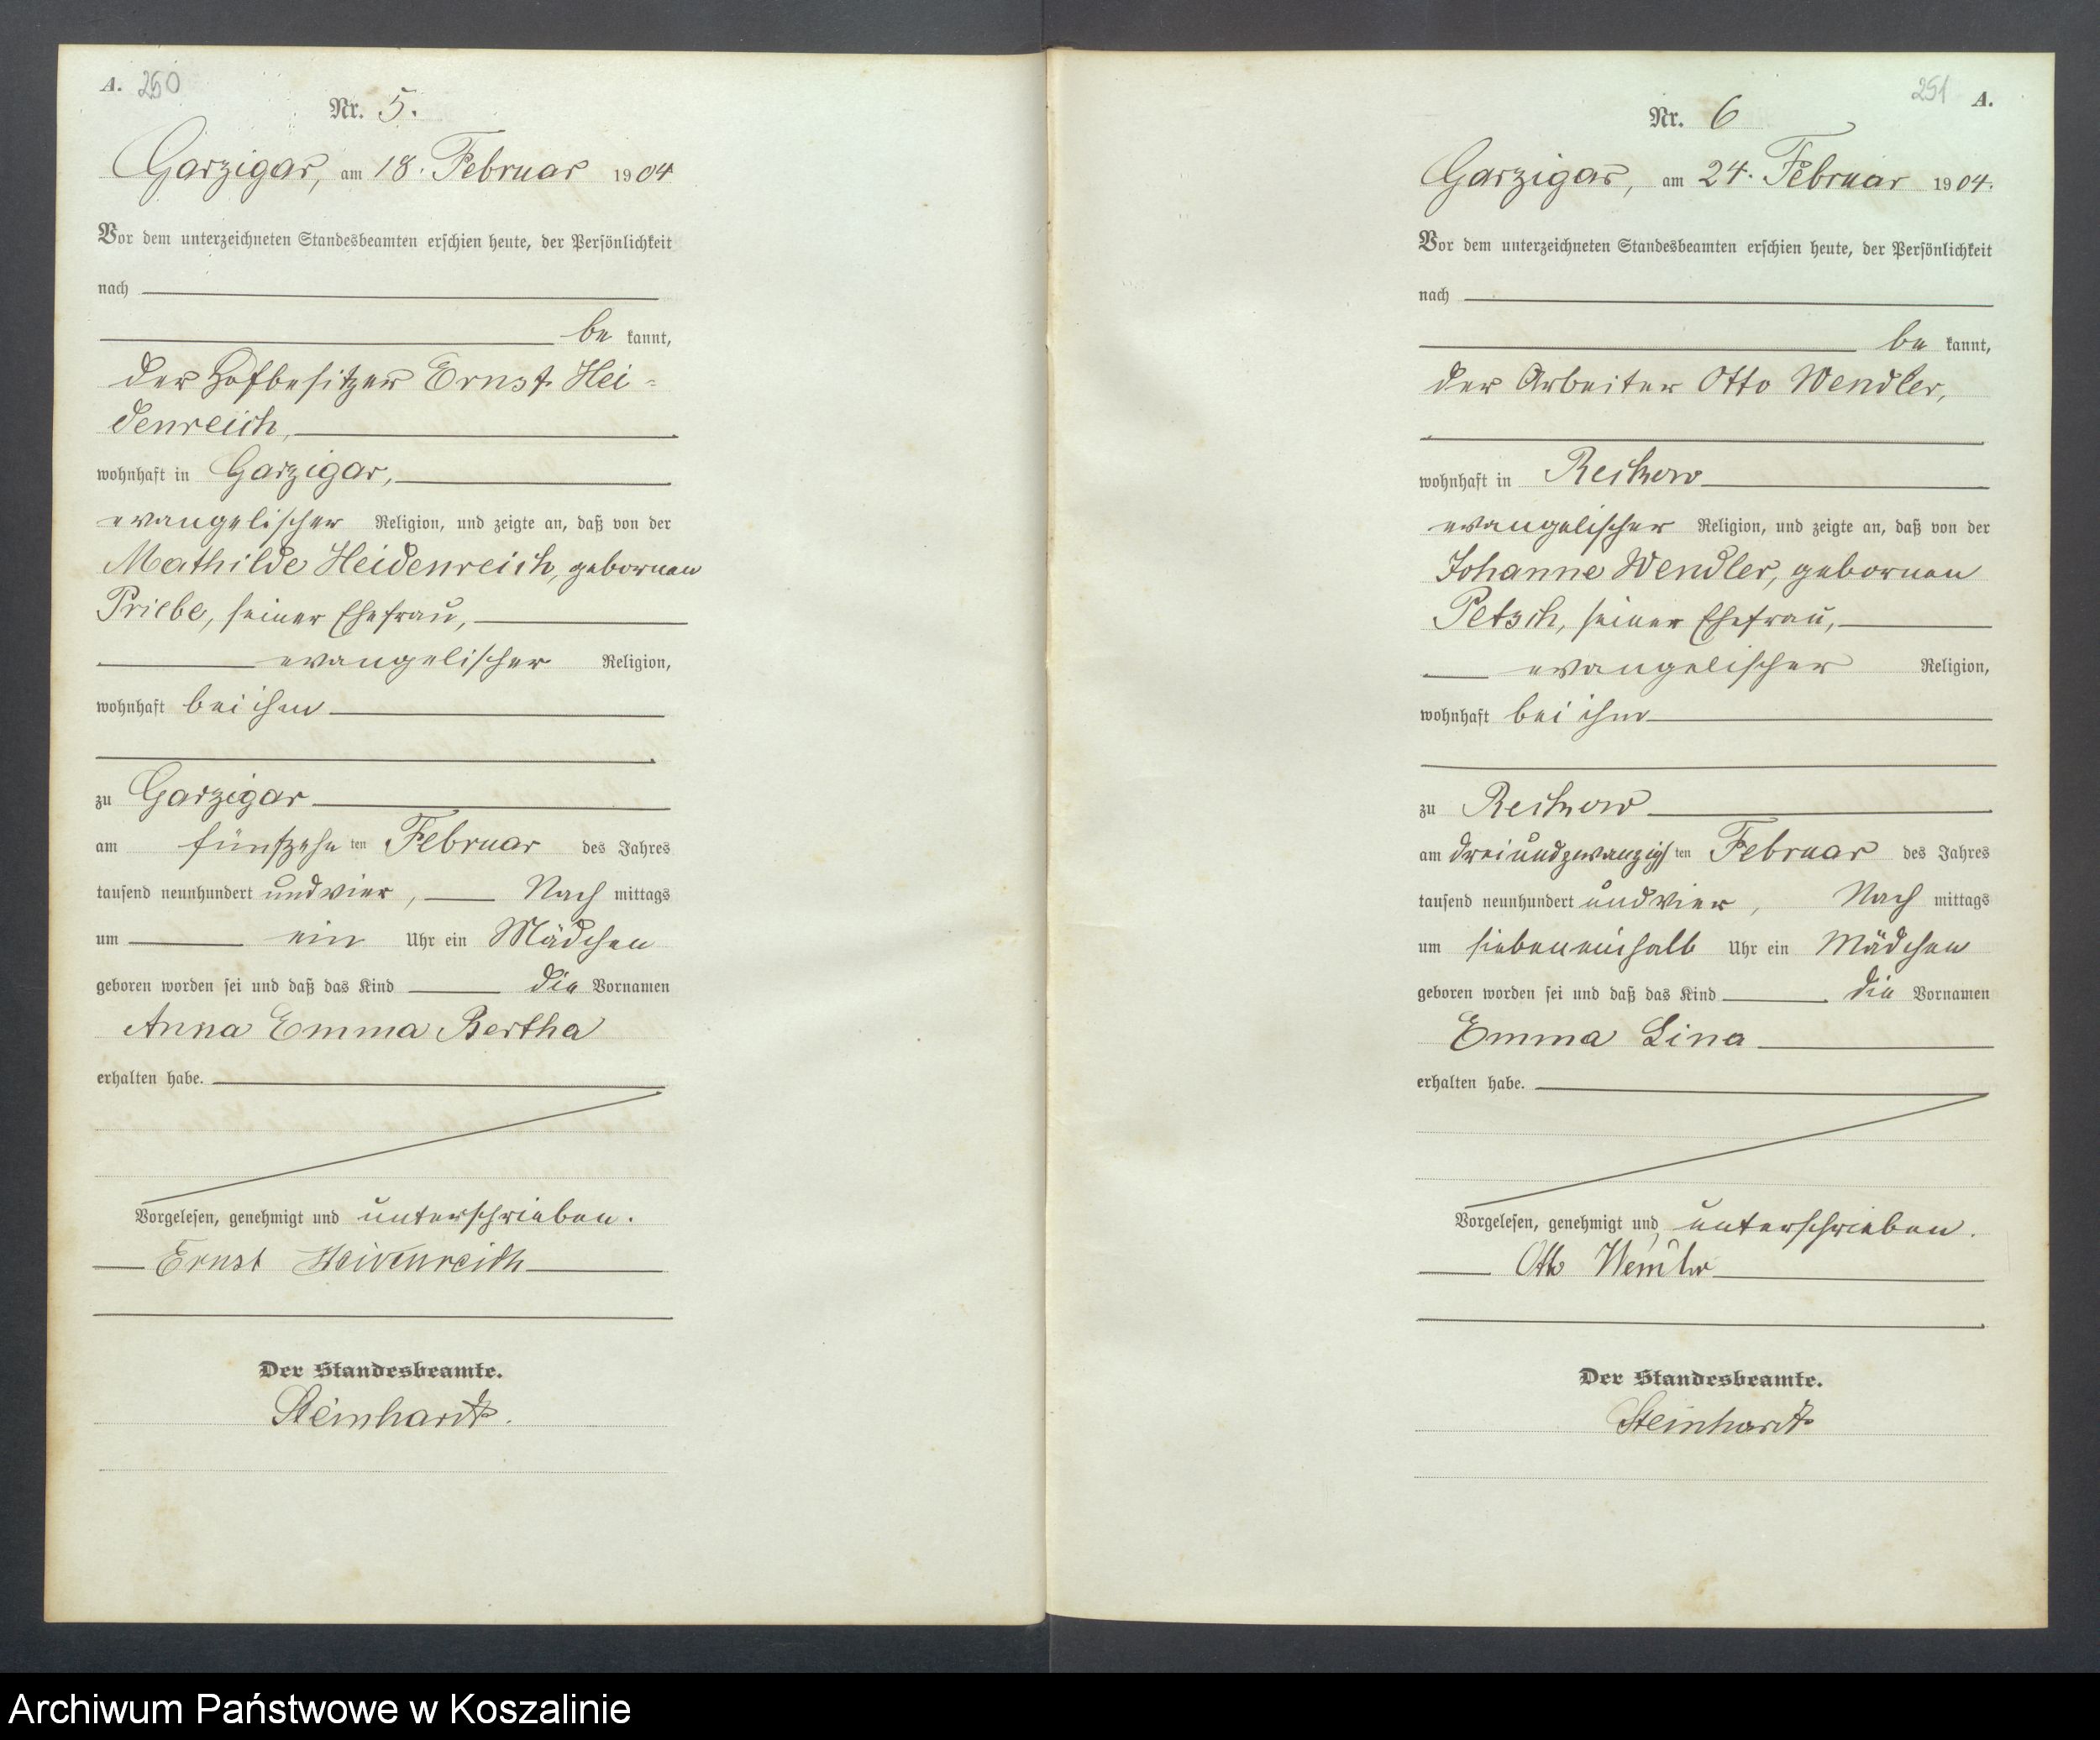 A. 250
Nr. 5.
Garzigar, am 18. Februar 1904
Vor dem unterzeichneten Standesbeamten erschien heute, der Persönlichkeit
nach
be kannt,
der Hofbesitzer Ernst Hei-
denreich,
wohnhaft in Garzigar,
evangelischer Religion, und zeigte an, daß von der
Mathilde Heidenreich, gebornen
Priebe, seiner Ehefrau,
evangelischer Religion,
wohnhaft bei ihm
zu Garzigar
am fünfzehn ten Februar des Jahres
tausend neunhundert undvier, Nach mittags
um ein Uhr ein Mädchen
geboren worden sei und daß das Kind die Vornamen
Anna Emma Bertha
erhalten habe.
Vorgelesen, genehmigt und unterschrieben.
Ernst Heidenreich
Der Standesbeamte.
Steinhardt.
251 A.
Nr. 6
Garzigar, am 24. Februar 1904.
Vor dem unterzeichneten Standesbeamten erschien heute, der Persönlichkeit
nach
be kannt,
der Arbeiter Otto Wendler,
wohnhaft in Reckow
evangelischer Religion, und zeigte an, daß von der
Johanne Wendler, gebornen
Petsch, seiner Ehefrau,
evangelischer Religion,
wohnhaft bei ihm
zu Reckow
am dreiundzwanzigs ten Februar des Jahres
tausend neunhundert undvier, Nach mittags
um siebeneinhalb Uhr ein Mädchen
geboren worden sei und daß das Kind die Vornamen
Emma Lina
erhalten habe.
Vorgelesen, genehmigt und unterschrieben.
Otto Wendler
Der Standesbeamte.
Steinhardt
Archiwum Państwowe w Koszalinie